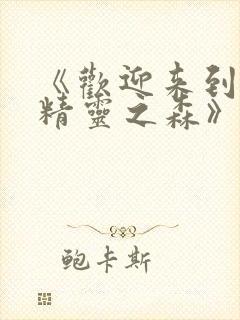 《歡迎来到
精靈之森》
鲍卡斯